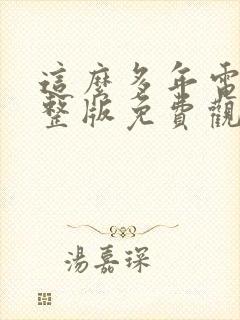 這麼多年電
整版免費觀
湯嘉琛